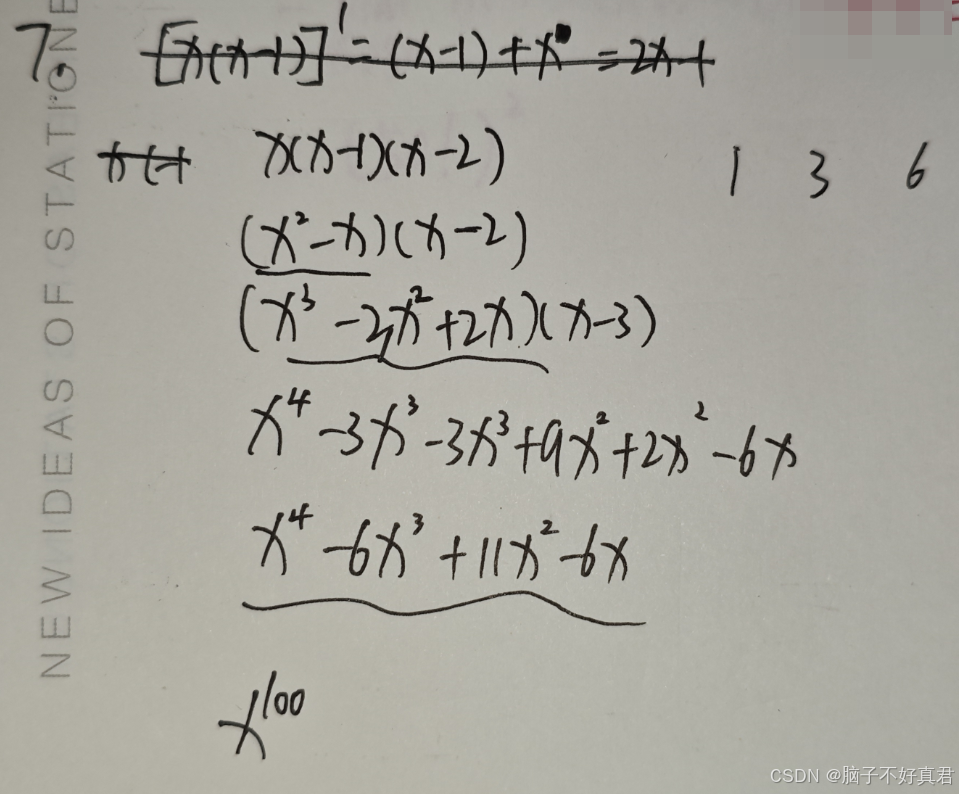 7. [x(x-1)]' = (x-1) + x = 2x-1
x(x-1)(x-2) 1 3 6
(x²-x)(x-2)
(x³-2x²+2x)(x-3)
x⁴-3x³-3x³+9x²+2x²-6x
x⁴-6x³+11x²-6x
x¹⁰⁰
NEW IDEAS OF STATIONE
CSDN @脑子不好真君